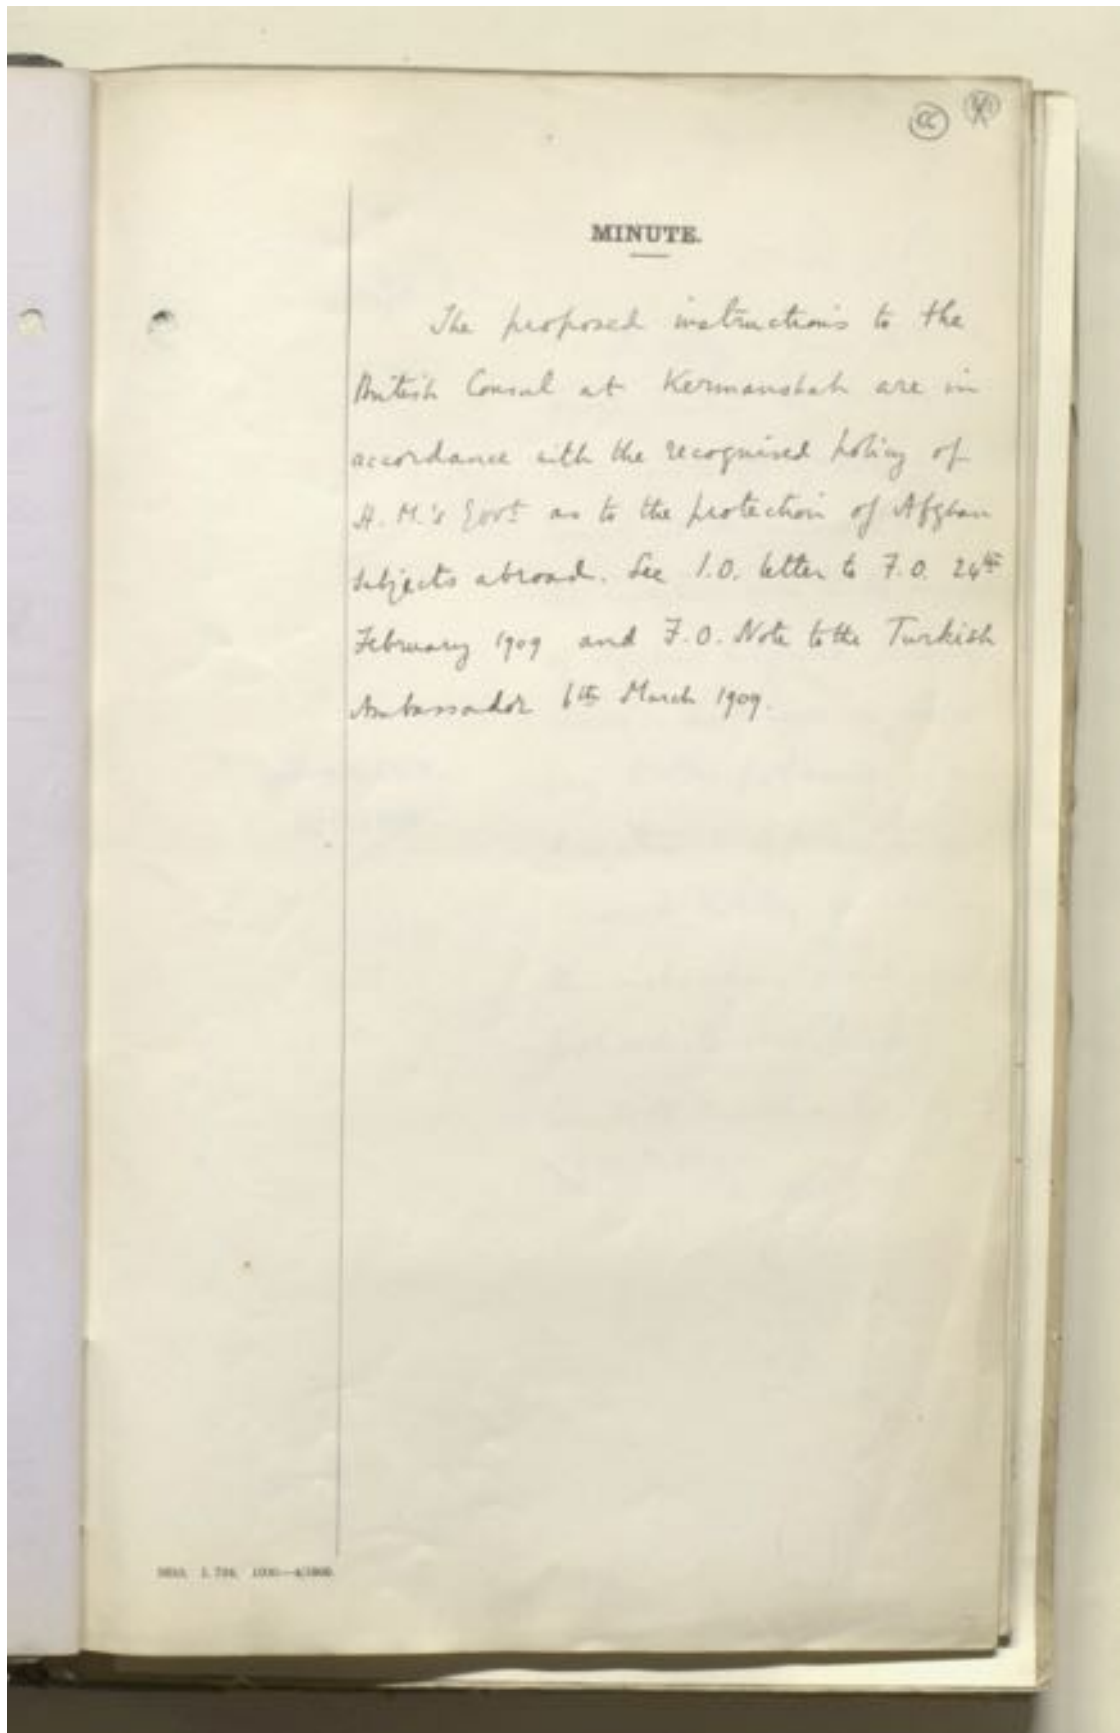 MINUTE.
The proposed instructions to the
British Consul at Kermanshah are in
accordance with the recognised policy of
H.M.'s Govt as to the protection of Afghan
subjects abroad. See I.O. letter to F.O. 24th
February 1909 and F.O. Note to the Turkish
Ambassador 6th March 1909.